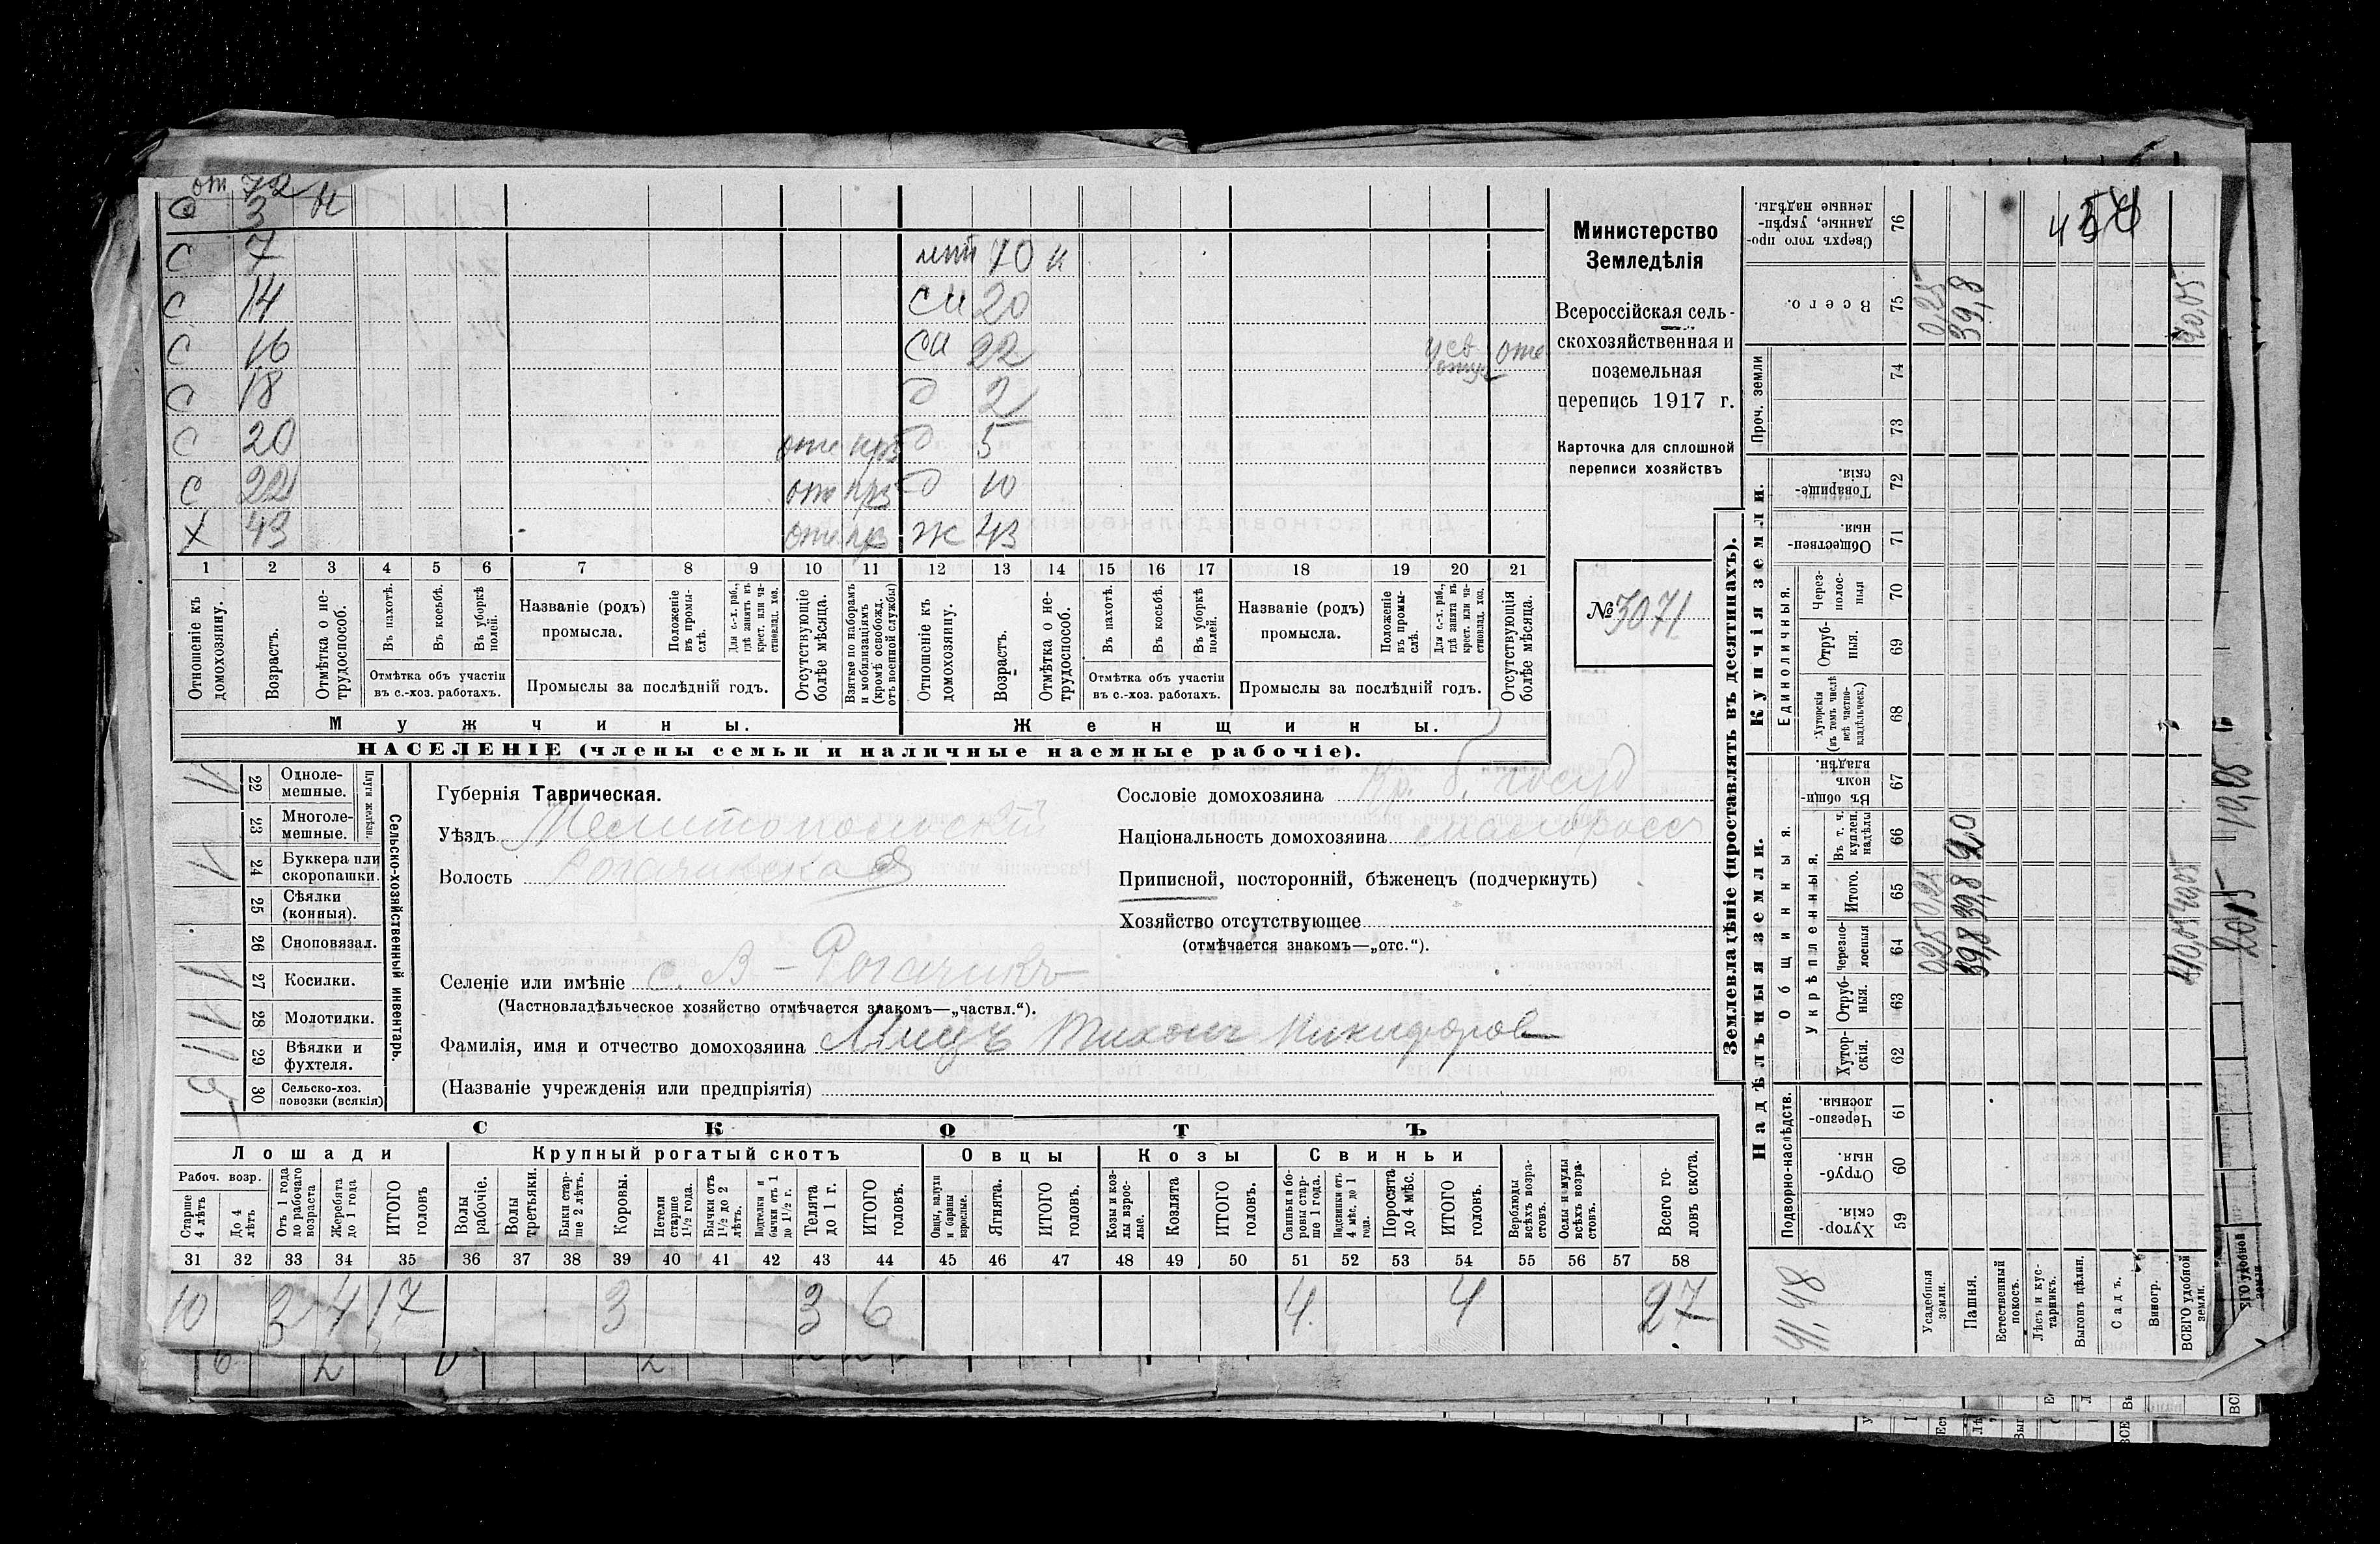 от 72 н
с 3
с 7
с 14
с 16
с 18
с 20 отс прз
с 22 отс прз
х 43 отс прз
мат 70 н
сн 20
сн 22 отс
д 2
д 5
д 10
ж 43
1 2 3 4 5 6 7 8 9 10 11 12 13 14 15 16 17 18 19 20 21
Отношеніе къ домохозяину.
Возрастъ.
Отмѣтка о не-трудоспособ.
Въ пахотѣ.
Въ косьбѣ.
Въ уборкѣ полей.
Отмѣтка объ участіи
въ с.-хоз. работахъ.
Названіе (родъ)
промысла.
Положеніе въ промы-слѣ.
Для с.-х. раб., гдѣ занятъ въ крест. или ча-стновлад. хоз.
Промыслы за послѣдній годъ.
Отсутствующіе болѣе мѣсяца.
Взятые по наборамъ и мобилизаціямъ (кромѣ освобожд. отъ военной службы)
Отношеніе къ домохозяину.
Возрастъ.
Отмѣтка о не-трудоспособ.
Въ пахотѣ.
Въ косьбѣ.
Въ уборкѣ полей.
Отмѣтка объ участіи
въ с.-хоз. работахъ.
Названіе (родъ)
промысла.
Положеніе въ промы-слѣ.
Для с.-х. раб., гдѣ занята въ крест. или ча-стновлад. хоз.
Промыслы за послѣдній годъ.
Отсутствующія болѣе мѣсяца.
Мужчины.
Женщины.
НАСЕЛЕНІЕ (члены семьи и наличные наемные рабочіе).
Министерство
Земледѣлія
Всероссійская сель-
скохозяйственная и
поземельная
перепись 1917 г.
Карточка для сплошной
переписи хозяйствъ
№ 3071
Сельско-хозяйственный инвентарь.
Плуги желѣзн.
22 Одноле-мешные. 1
23 Многоле-мешные.
24 Буккера или скоропашки. 1
25 Сѣялки (конныя).
26 Сноповязал.
27 Косилки. 1
28 Молотилки. 1
29 Вѣялки и фухтеля. 1
30 Сельско-хоз. повозки (всякія)
Губернія Таврическая.
Уѣздъ Мелитопольскій
Волость Рогачинская
Селеніе или имѣніе с. В-Рогачикъ
(Частновладѣльческое хозяйство отмѣчается знакомъ—„частвл.“).
Фамилія, имя и отчество домохозяина Тихонъ Никифоров
(Названіе учрежденія или предпріятія)
Сословіе домохозяина Кр. б. госуд
Національность домохозяина малоросс
Приписной, посторонній, бѣженецъ (подчеркнуть)
Хозяйство отсутствующее
(отмѣчается знакомъ—„отс.“).
СКОТЪ
Лошади
Крупный рогатый скотъ
Овцы
Козы
Свиньи
Рабоч. возр.
Старше 4 лѣтъ
До 4 лѣтъ
Отъ 1 года до рабочаго возраста
Жеребята до 1 года
ИТОГО головъ
Волы рабочіе.
Волы третьяки.
Быки стар-ше 2 лѣтъ.
Коровы.
Нетели старше 1½ года.
Бычки отъ 1½ до 2 лѣтъ.
Подтелки и бычки отъ 1 до 1½ г.
Телята до 1 г.
ИТОГО головъ.
Овцы, валухи и бараны взрослые.
Ягнята.
ИТОГО головъ.
Козы и коз-лы взрос-лые.
Козлята
ИТОГО головъ.
Свиньи и бо-ровы стар-ше 1 года.
Подсвинки отъ 4 мѣс. до 1 года.
Поросята до 4 мѣс.
ИТОГО головъ.
Верблюды всѣхъ возра-стовъ.
Ослы и мулы всѣхъ возра-стовъ.
Всего го-ловъ скота.
31 32 33 34 35 36 37 38 39 40 41 42 43 44 45 46 47 48 49 50 51 52 53 54 55 56 57 58
10 3 4 17 3 3 6 4 4 27
Землевладѣніе (проставлять въ десятинахъ).
Надѣльныя земли.
Купчія земли.
Подворно-наслѣдств.
Общинныя.
Укрѣпленныя.
Единоличныя.
Проч. земли
Сверхъ того про-данные, укрѣп-ленные надѣлы. 76
Всего. 75 0,25 39,8 40,05
74
73
Товарище-скія. 72
Обществен-ныя. 71
Через-полос-ныя 70
Отруб-ныя. 69
Хуторскія (въ томъ числѣ всѣ частно-владѣльческ.) 68
Въ общи-номъ владѣн. 67
Въ т. ч. куплен. надѣлы 66
Итого. 65 39,8 40,05
Черезпо-лосныя 64 0,25 39,8 40,05
Отруб-ныя. 63
Хутор-скія. 62
Черезпо-лосныя. 61
Отруб-ныя. 60
Хутор-скія. 59
Усадебныя земли.
Пашня.
Естественный покосъ.
Лѣсъ и кус-тарникъ.
Выгонъ цѣлин.
Садъ.
Виногр.
ВСЕГО удобной земли.
41.48